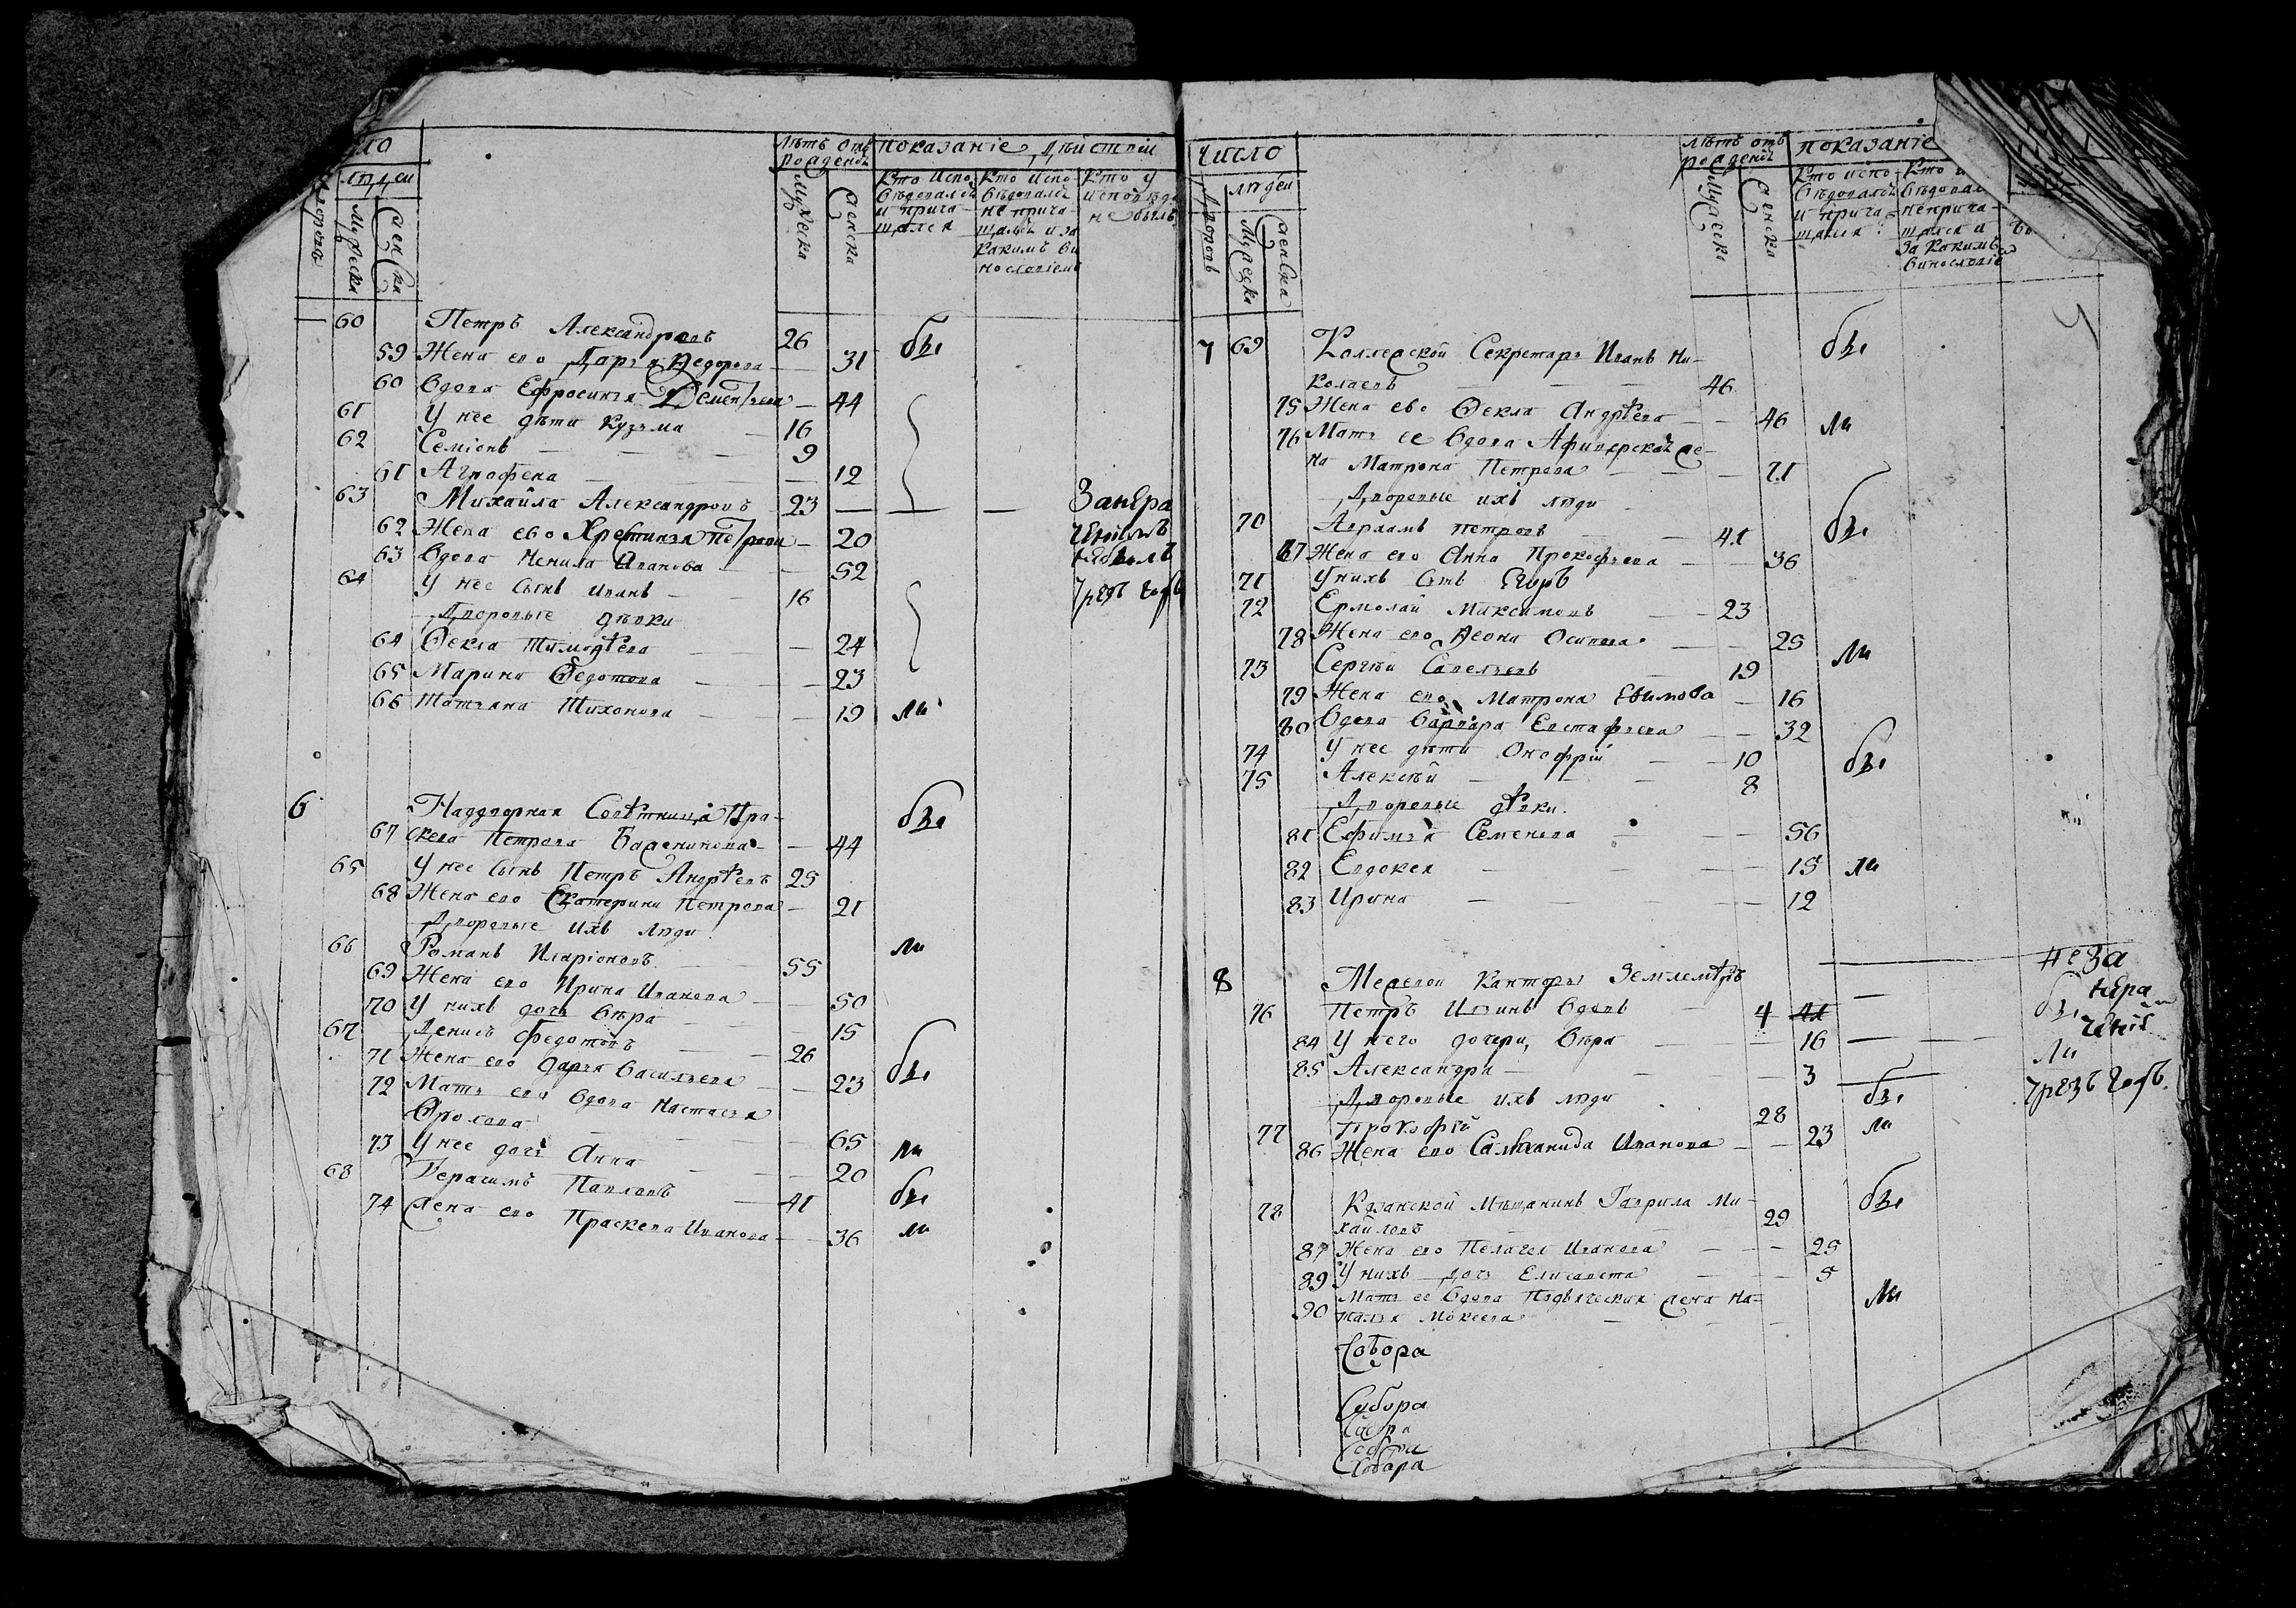 ло
Лѣтъ отъ показаніе дѣйствій
рожденія
людей
дворовъ
Мужеска
Женска
Мужеска
Женска
Кто испо- Кто испо- Кто у
вѣдовался вѣдовался исповѣди
и прича- не прича- не былъ
щался щался и за
какимъ ви
нословіемъ
60 Петръ Александровъ 26 бы
59 Жена ево Дарья Федорова — 31
60 Вдова Ефросинья Дементьева — 44
61 У нее дѣти Кузьма — 16
62 Семіонъ — — — 9
61 Агрофена — — 12
63 Михаила Александровъ 23 — — —
62 Жена ево Христинья Петрова — 20
63 Вдова Ненила Иванова — — 52
64 У нее сынъ Иванъ — — 16
Дворовые дѣвки
64 Фекла Тимофѣева — — 24
65 Марина Федотова — — 23
66 Татьяна Тихонова — — 19 ли
6 Надворная Совѣтница Пра-
67 скева Петрова — 44 бы
65 У нее сынъ Петръ Андрѣевъ 25
68 Жена ево Екатерина Петрова — 21
Дворовые ихъ люди
66 Романъ Иларіоновъ — 55 ли
69 Жена ево Ирина Иванова — 50
70 У нихъ дочь Вѣра — — 15
67 Денисъ Федотовъ — — 26
71 Жена ево Дарья Васильева — — 23 бы
72 Мать ево вдова Настасья
Фролова — — — 65
73 У нее дочь Анна — — 20 ли
68 Герасимъ Павловъ — 41 бы
74 Жена ево Праскева Иванова — 36 ли
Число
Лѣтъ отъ показаніе
рожденія
людей
дворовъ
Мужеска
Женска
Мужеска
Женска
Кто испо- Кто и
вѣдовался вѣдовал
и прича- неприча-
щался щался и
за какимъ
винословіе
7 69 Коллежской Секретарь Иванъ Ни- бы
колаевъ — — — 46
75 Жена ево Фекла Андрѣева — — 46 ли
76 Мать ее вдова Афицерская же-
на Матрона Петрова — — 71
Дворовые ихъ люди
70 Аврхамъ Петровъ — — 41 бы
77 Жена ево Анна Прокофьева — — 36
71 У нихъ сынъ Егоръ
72 Ермолай Максимовъ — — 23
78 Жена ево Осипова — — 25
73 Сергѣй Савельевъ — 19 ли
79 Жена ево Матрона Евимова — 16
80 Вдова Варвара Евстафьева — — 32
74 У нее дѣти Онофрій — — 10 бы
75 Алексѣй — — — 8
Дворовые дѣвки.
81 Ефимья Семенова — — — 56
82 Евдокея — — — 15 ли
83 Ирина — — — — 12
8 Межевой Канторы Землемѣръ
76 Петръ вдовъ — 4
84 У него дочери, Вѣра — — 16 — —
85 Александра — — — 3 —
Дворовые ихъ люди бы
77 Прокофій 28 ли
86 Жена ево Иванова — — 23
78 Казанской Мѣщанинъ Гаврила Ми- бы
хайловъ — 29
87 Жена ево Пелагея Иванова — — 25
89 У нихъ дочь Елисавета — — 5
90 Мать ее вдова Подъяческая жена На- ли
талья Мокеева — — —
Собора
Собора
Собора
Собора